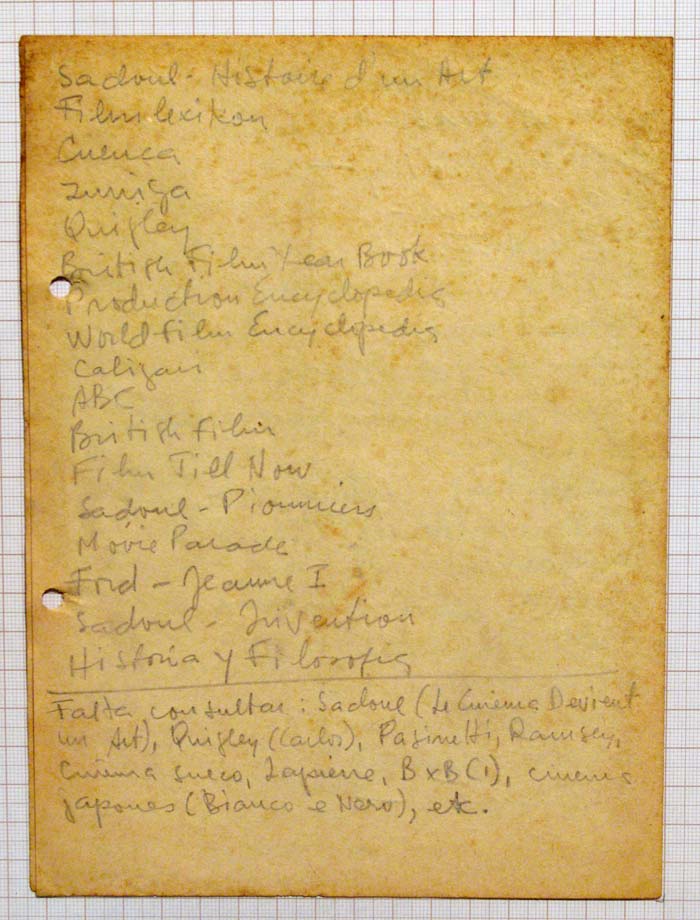 Sadoul - Histoire d'un Art
Filmlexikon
Cuenca
Zuniga
Quigley
British Film Year Book
Production Encyclopedia
World Film Encyclopedia
Caligari
ABC
British Film
Film Till Now
Sadoul - Pionniers
Movie Parade
Ford - Jeanne I
Sadoul - Invention
Historia y Filosofia
Falta consultar: Sadoul (Le Cinema Devient
un Art), Quigley (Carlos), Pasinetti, Ramsey,
Cinema sueco, Lapierre, B x B (1), cinema
japones (Bianco e Nero), etc.